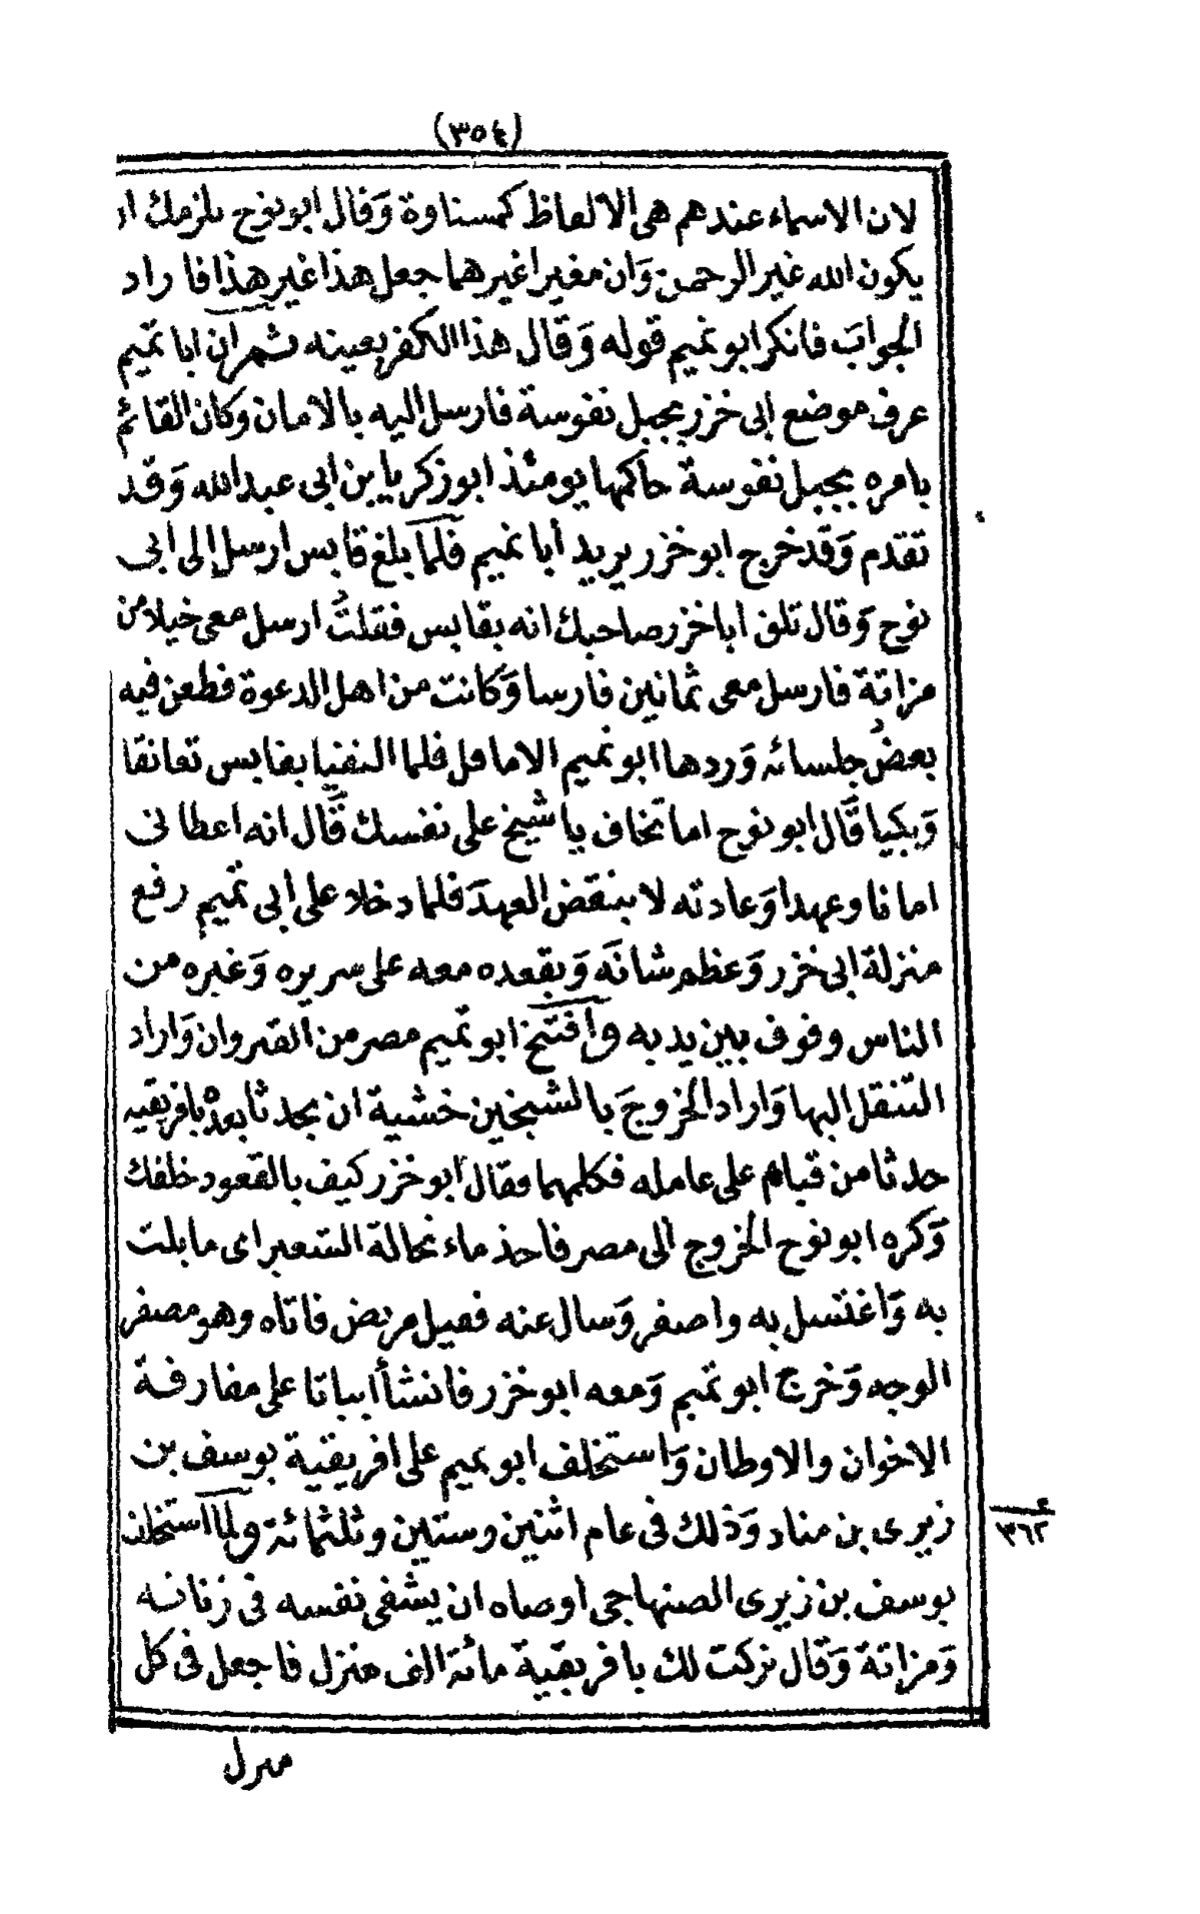 (٣٥٤)
لان الاسماء عندهم هى الالفاظ كمسناوة وَقال ابو نوح يلزمك ان
يكون الله غير الرحمن وَان مغيرا غيرهما جعل هذا غير هذا فاراد
الجواب فانكر ابو تميم قوله وَقال هذا الكفر بعينه ثم ان ابا تميم
عرف موضع ابى خزر بجبل نفوسة فارسل اليه بالامان وكان القائم
بامره بجبل نفوسة حاكمها يومئذ ابو زكريا بن ابى عبد الله وَقد
تقدم وَقد خرج ابو خزر يريد أبا تميم فلما بلغ قابس ارسل الى ابى
نوح وَقال تلق ابا خزر صاحبك انه بقابس فقلتُ ارسل معى خيلا من
مزاتة فارسل معى ثمانين فارسا وَكانت من اهل الدعوة فطعن فيه
بعض جلسائه وَردها ابو تميم الاماقل فلما التقيا بقابس تعانقا
وَبكيا قال ابو نوح اما تخاف يا شيخ على نفسك قال انه اعطانى
امانا وعهدا وَعادته لا ينقض العهد فلما دخلا على أبى تميم رفع
منزلة ابى خزر وَعظم شانه وَيقعده معه على سريره وَغيره من
الناس وقوف بين يديه وافتتح ابو تميم مصر من القيروان وَاراد
التنقل اليها وَاراد الخروج بالشيخين خشية ان يحدثا بعده بافريقيه
حدثا من قيام على عامله فكلمهما فقال ابو خزر كيف بالقعود خلفك
وَكره ابو نوح الخروج الى مصر فأخذ ماء نخالة الشعير اى ما بلت
به وَاغتسل به واصفر وَسال عنه فقيل مريض فاتاه وهو مصفر
الوجه وَخرج ابو تميم وَمعه ابو خزر فانشأ ابياتا على مفارقة
الاخوان والاوطان وَاستخلف ابو تميم على افريقية يوسف بن
زيرى بن مناد وَذلك فى عام اثنين وستين وثلثمائة ولما استخلف
ء
٣٦٢
يوسف بن زيرى الصنهاجى أوصاه ان يشفى نفسه فى زناته
وَمزاتة وَقال تركت لك بافريقية مائة الف منزل فاجعل فى كل
منزل